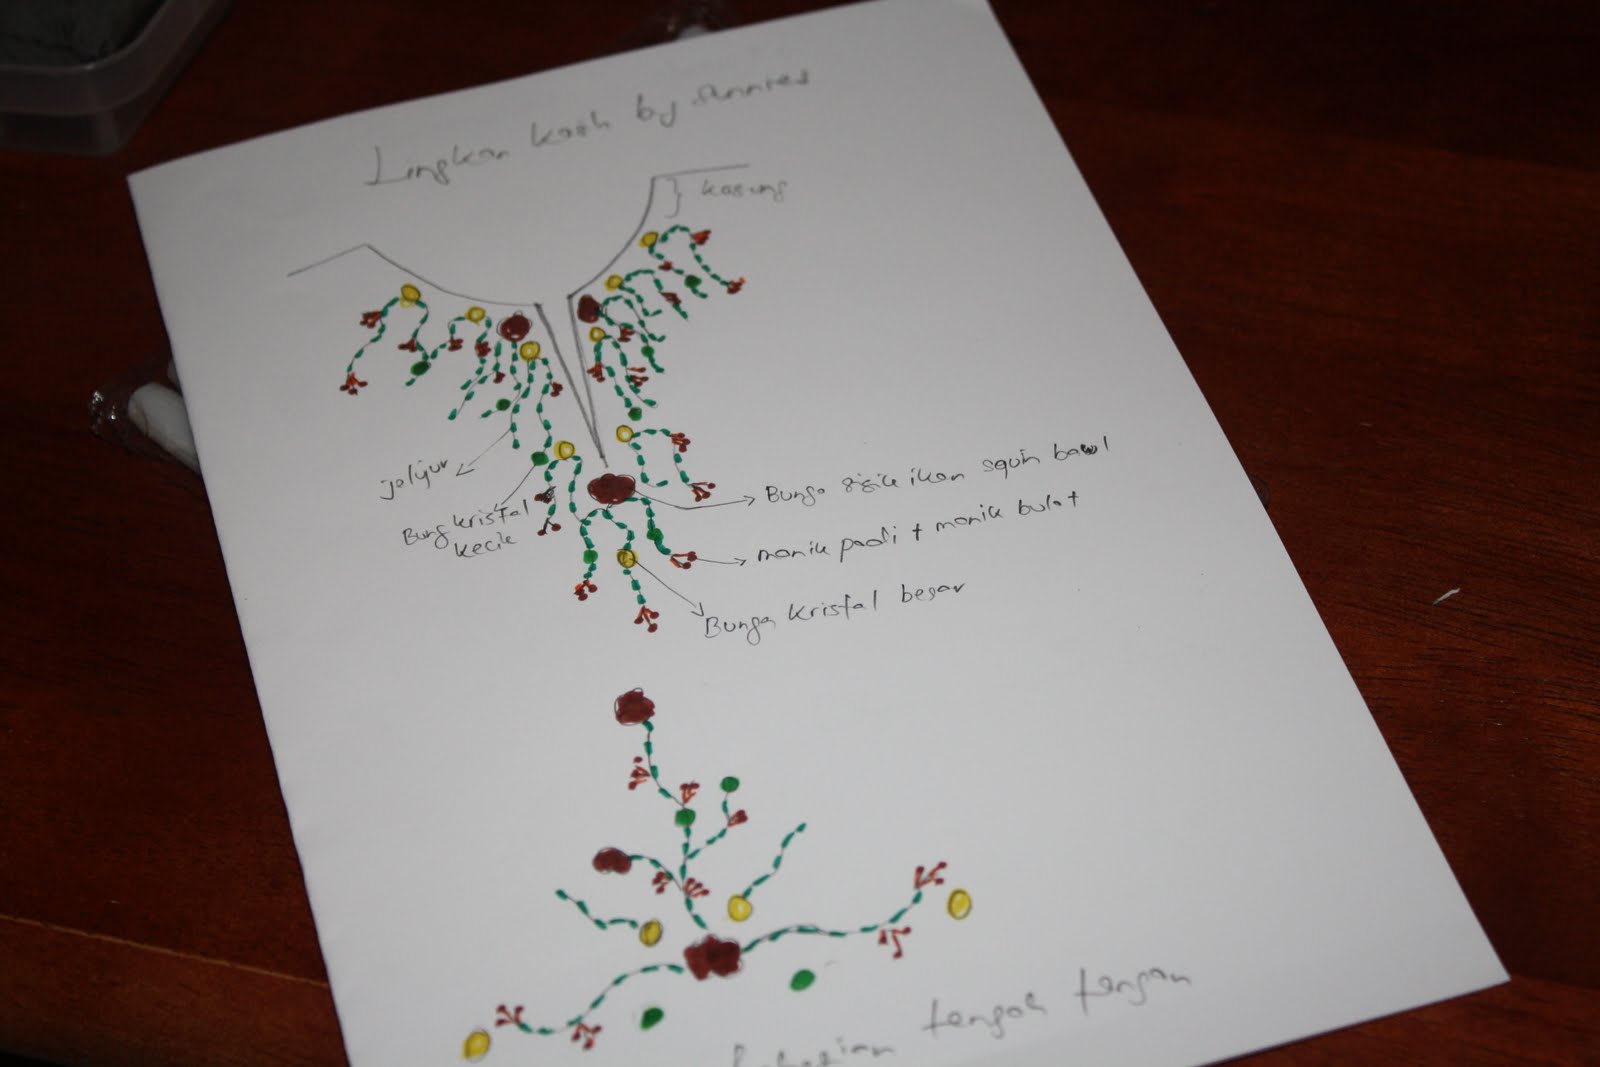 Lingkan kash by sunnies
kosung
jelijur
Bung kristal
kecik
Bunga sisik ikan squin bawl
manik padi + manik bulat
Bunga kristal besar
tengah tangan